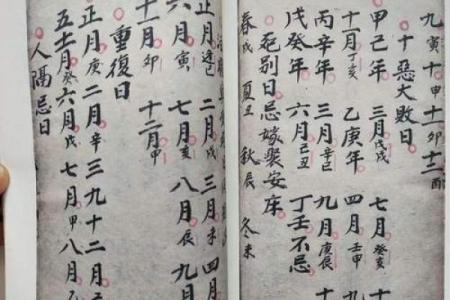 九寅十甲十一卯十二酉
十惡大敗日
甲己年 三月戊戌 七月癸亥 十
十一月丁亥 乙庚年 四月壬申
丙辛年 三月辛巳 九月庚辰 十
戊癸年 六月己丑 丁壬不忌
死別日忌嫁娶安床
春戌 夏丑 秋辰 冬未
正月 巳 二月戌 三月未 四月
六月寅 七月亥 八月辰 九月
十一月卯 十二月甲
重復日
正月庚 二月辛 三九十二月
五十一月癸 六月戊 七月甲 八月
人隔忌日